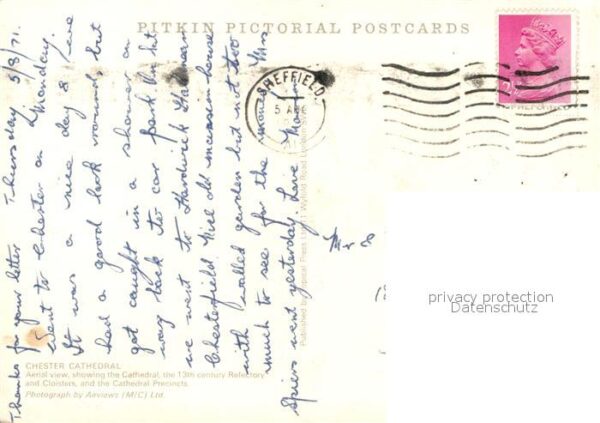 PITKIN PICTORIAL POSTCARDS
SHEFFIELD
Thanks for your letter Thursday 5/8/71.
Went to Chester on Monday.
It was a nice day & we
had a good look around, but
got caught in a shower on
way back to car park. Sun. ht
we went to Hardwick Hall near
Chesterfield. Nice old mansion house
with walled garden but not too
much to see for the money. Mrs
Spiers went yesterday. Love
Mr &
CHESTER CATHEDRAL
Aerial view, showing the Cathedral, the 13th century Refectory
and Cloisters, and the Cathedral Precincts
Photograph by Airviews (M/C) Ltd.
privacy protection
Datenschutz